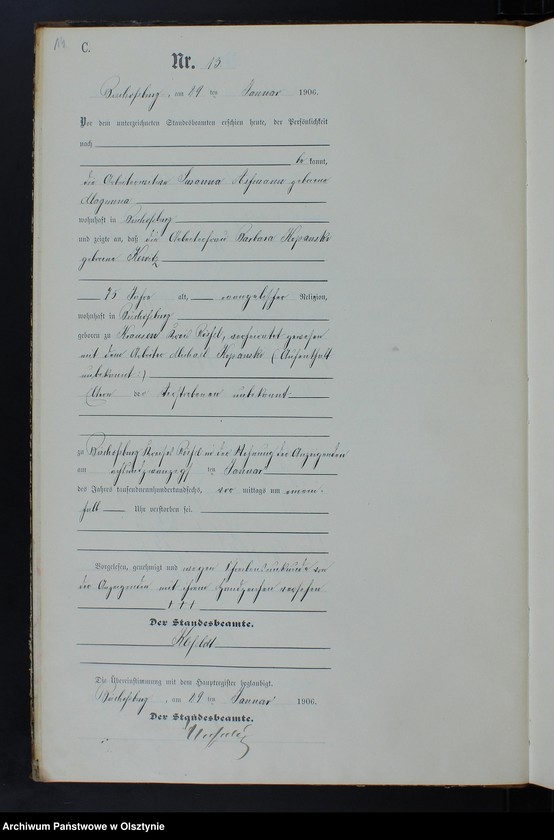 14
C.
Nr. 15
Bischofsburg, am 29 ten Januar 1906.
Vor dem unterzeichneten Standesbeamten erschien heute, der Persönlichkeit
nach
be kannt,
die Arbeiterwitwe Susanna Assmann geborene
wohnhaft in Bischofsburg
und zeigte an, daß die Arbeiterfrau Barbara
geborene
75 Jahre alt, evangelischer Religion,
wohnhaft in Bischofsburg
geboren zu Krausen Kreis Rößel, verheiratet gewesen
mit dem Arbeiter Michael (Aufenthalt
unbekannt)
Eltern der Verstorbenen unbekannt
zu Bischofsburg Kreises Rößel in der Wohnung der Anzeigenden
am achtundzwanzigsten Januar
des Jahres tausendneunhundertundsechs, vor mittags um
halb Uhr verstorben sei.
Vorgelesen, genehmigt und wegen Schreibensunkunde von
der Anzeigenden mit ihrem Handzeichen versehen
+ + +
Der Standesbeamte.
Die Übereinstimmung mit dem Hauptregister beglaubigt.
Bischofsburg, am 29 ten Januar 1906.
Der Standesbeamte.
Archiwum Państwowe w Olsztynie